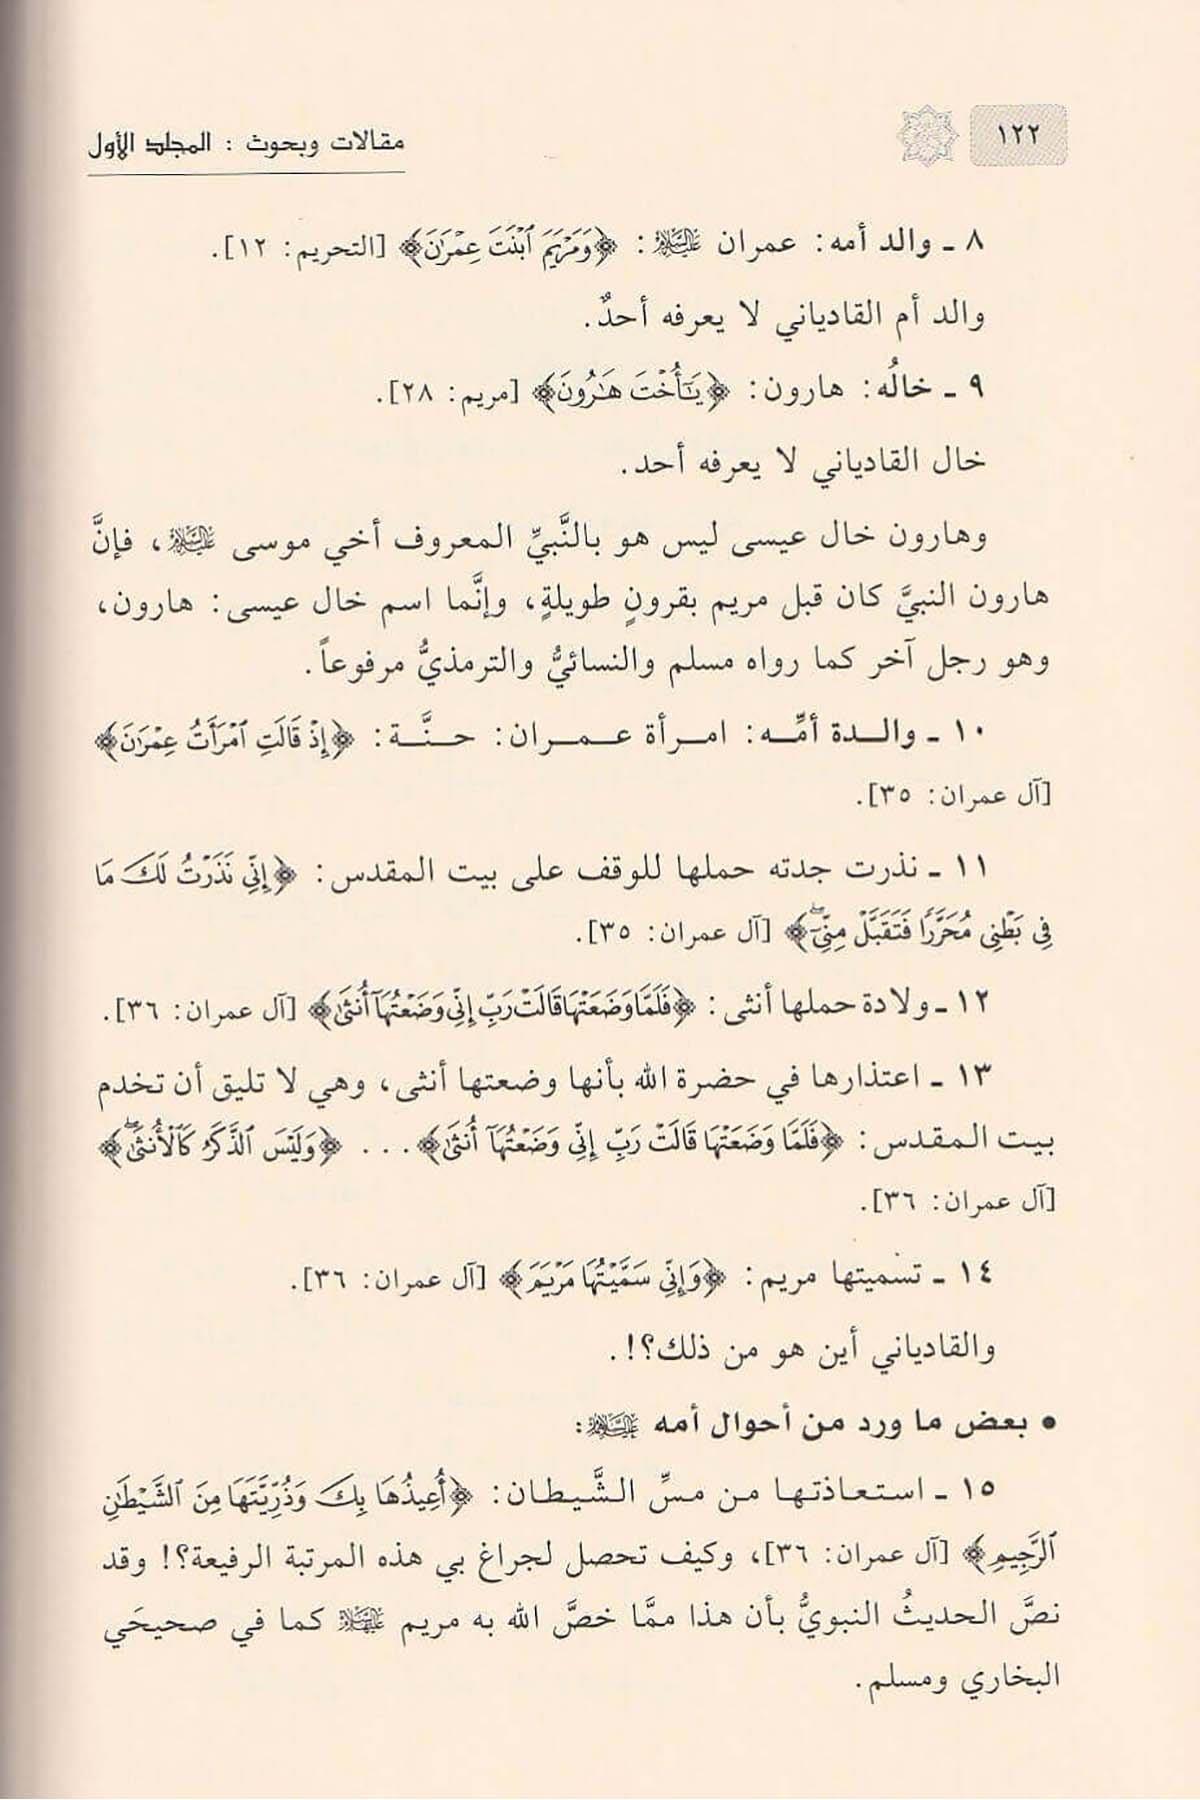 ١٢٢
مقالات وبحوث : المجلد الأول
٨ ـ والد أمه: عمران عليه السلام: ﴿وَمَرْيَمَ ٱبْنَتَ عِمْرَٰنَ﴾ [التحريم: ١٢].
والد أم القادياني لا يعرفه أحدٌ.
٩ ـ خالُه: هارون: ﴿يَـٰٓأُخْتَ هَـٰرُونَ﴾ [مريم: ٢٨].
خال القادياني لا يعرفه أحد.
وهارون خال عيسى ليس هو بالنَّبيِّ المعروف أخي موسى عليه السلام، فإنَّ
هارون النبيَّ كان قبل مريم بقرونٍ طويلةٍ، وإنَّما اسم خال عيسى: هارون،
وهو رجل آخر كما رواه مسلم والنسائيُّ والترمذيُّ مرفوعاً.
١٠ ـ والـدة أمِّـه: امـرأة عـمـران: حـنَّـة: ﴿إِذْ قَالَتِ ٱمْرَأَتُ عِمْرَٰنَ﴾
[آل عمران: ٣٥].
١١ ـ نذرت جدته حملها للوقف على بيت المقدس: ﴿إِنِّى نَذَرْتُ لَكَ مَا
فِى بَطْنِى مُحَرَّرًا فَتَقَبَّلْ مِنِّىٓۖ﴾ [آل عمران: ٣٥].
١٢ ـ ولادة حملها أنثى: ﴿فَلَمَّا وَضَعَتْهَا قَالَتْ رَبِّ إِنِّى وَضَعْتُهَآ أُنثَىٰ﴾ [آل عمران: ٣٦].
١٣ ـ اعتذارها في حضرة الله بأنها وضعتها أنثى، وهي لا تليق أن تخدم
بيت المقدس: ﴿فَلَمَّا وَضَعَتْهَا قَالَتْ رَبِّ إِنِّى وَضَعْتُهَآ أُنثَىٰ﴾... ﴿وَلَيْسَ ٱلذَّكَرُ كَٱلْأُنثَىٰۖ﴾
[آل عمران: ٣٦].
١٤ ـ تسميتها مريم: ﴿وَإِنِّى سَمَّيْتُهَا مَرْيَمَ﴾ [آل عمران: ٣٦].
والقادياني أين هو من ذلك؟!.
• بعض ما ورد من أحوال أمه عليها السلام:
١٥ ـ استعاذتها من مسِّ الشَّيطان: ﴿أُعِيذُهَا بِكَ وَذُرِّيَّتَهَا مِنَ ٱلشَّيْطَـٰنِ
ٱلرَّجِيمِ﴾ [آل عمران: ٣٦]، وكيف تحصل لجراغ بي هذه المرتبة الرفيعة؟! وقد
نصَّ الحديثُ النبويُّ بأن هذا ممَّا خصَّ الله به مريم عليها السلام كما في صحيحَي
البخاري ومسلم.